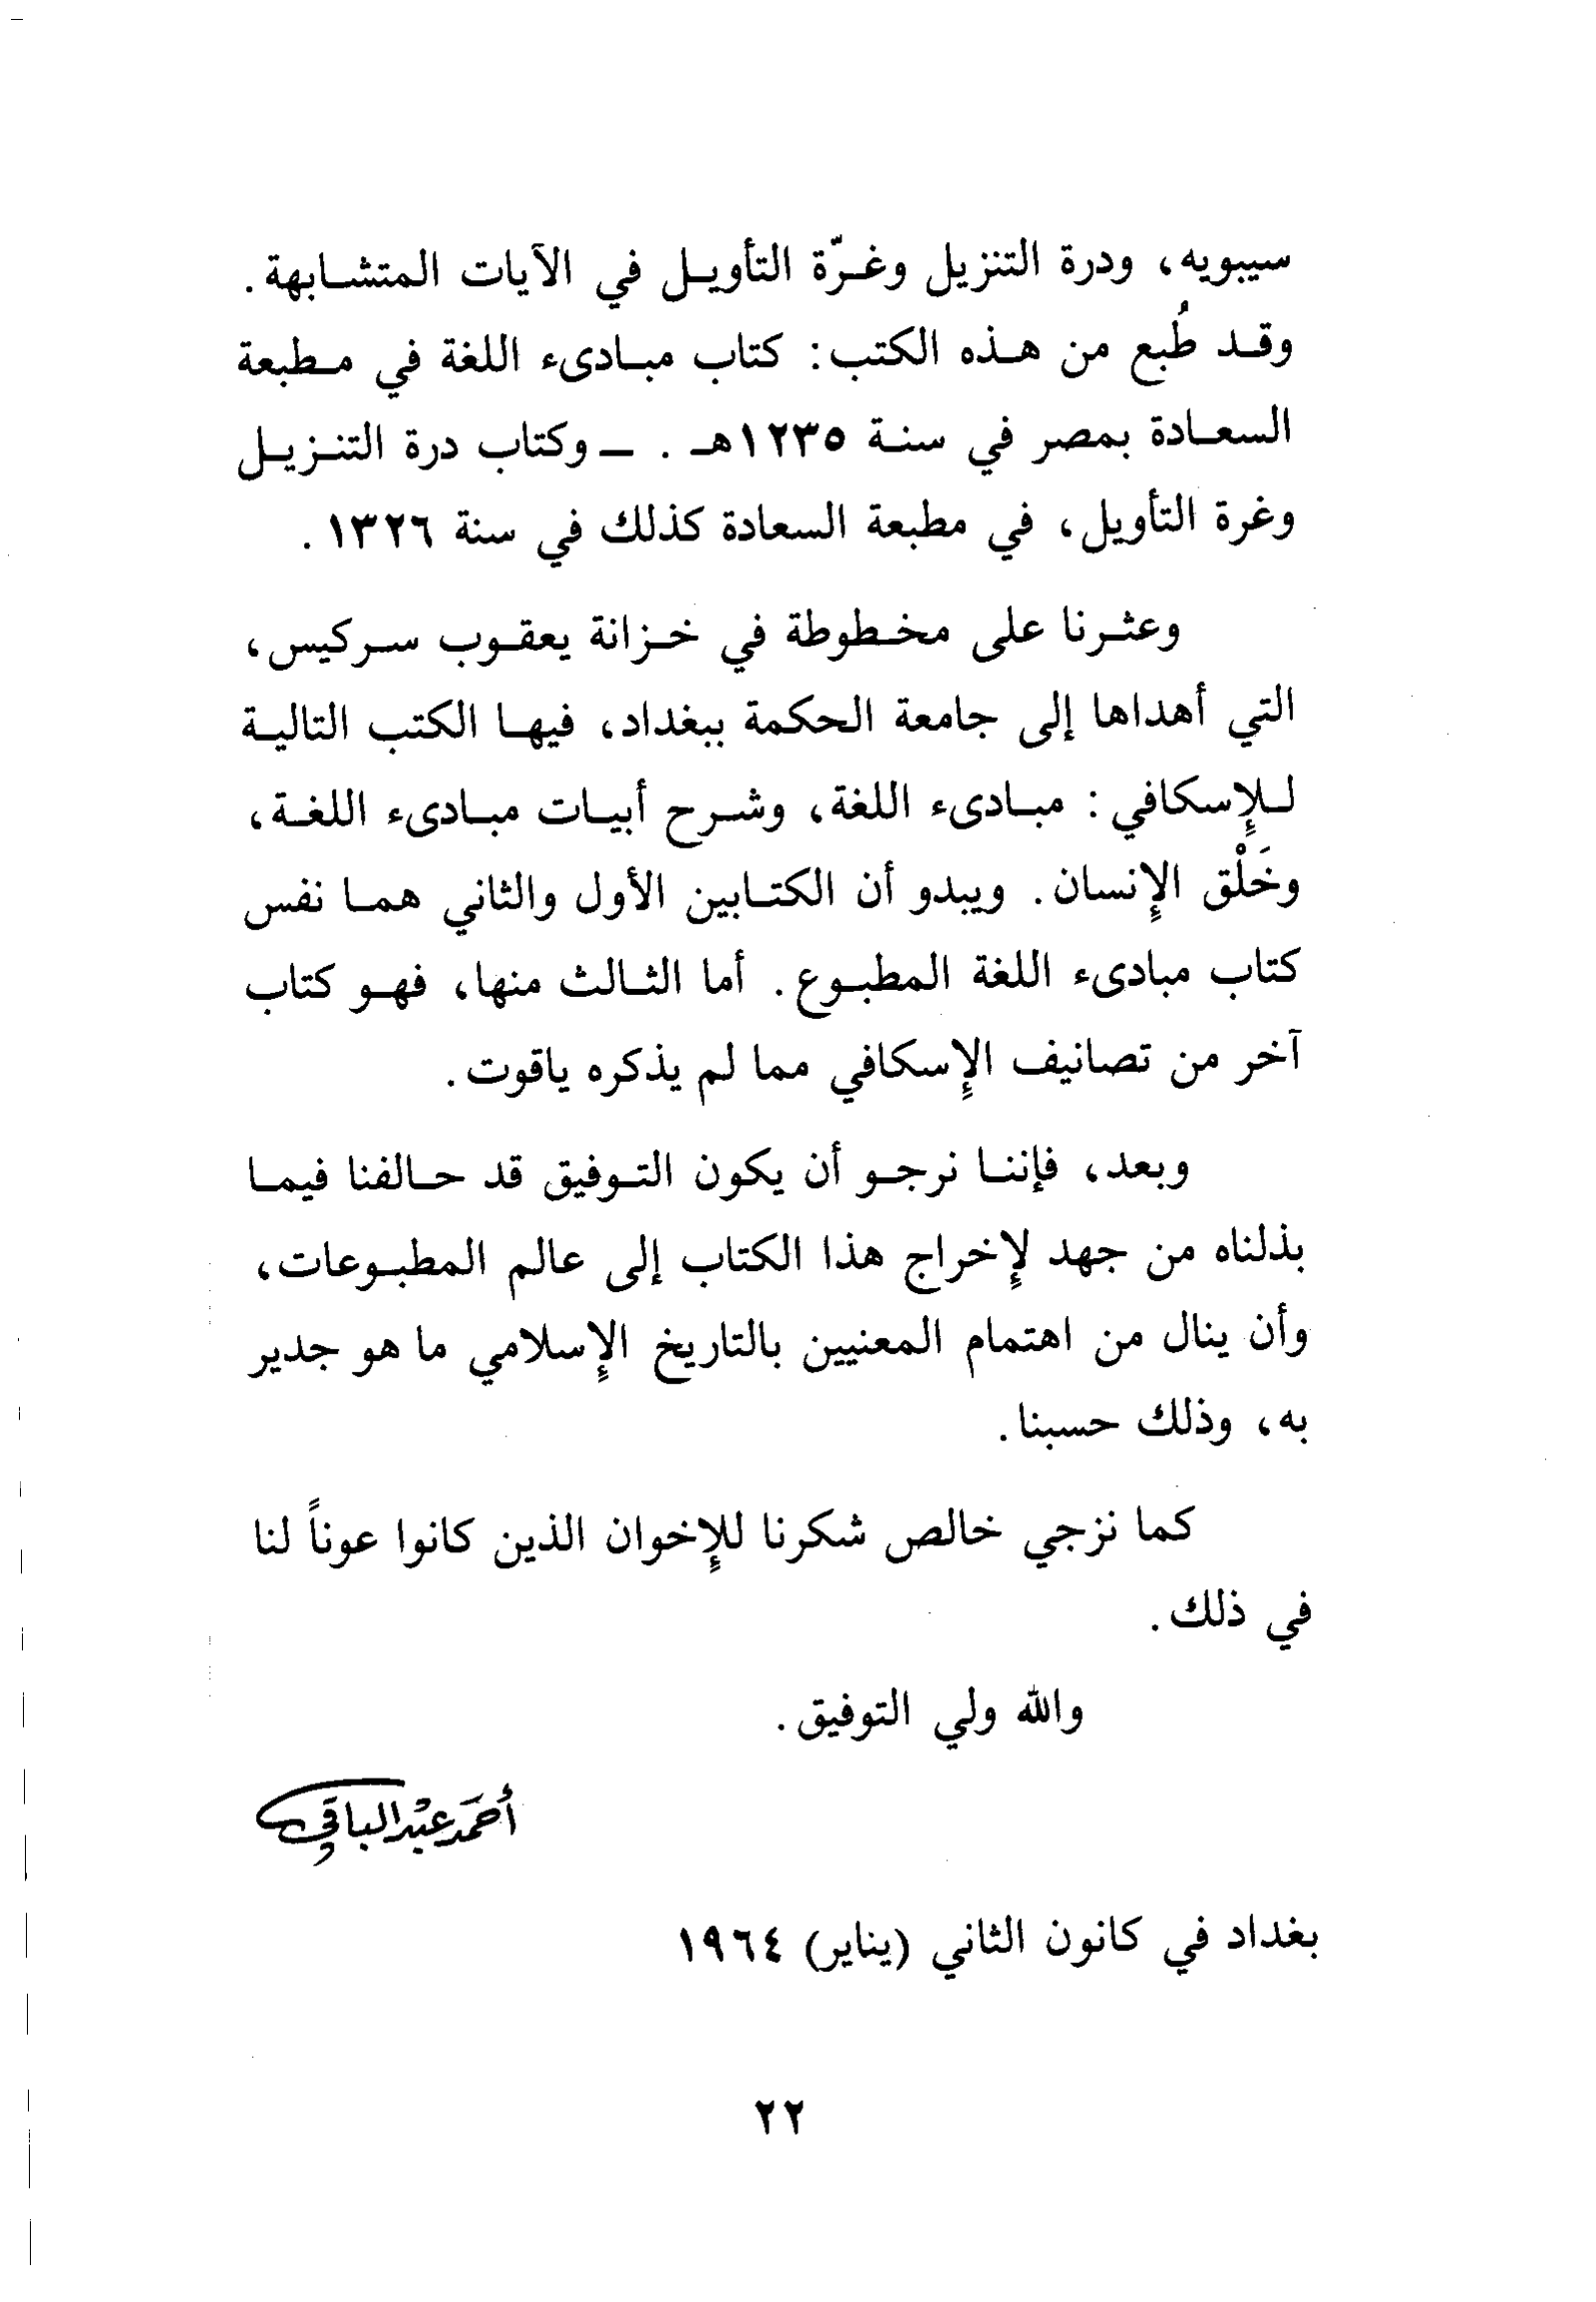 سيبويه، ودرة التنزيل وغرّة التأويل في الآيات المتشابهة.
وقد طُبع من هذه الكتب: كتاب مبادىء اللغة في مطبعة
السعادة بمصر في سنة ١٢٣٥هـ . ــ وكتاب درة التنزيل
وغرة التأويل، في مطبعة السعادة كذلك في سنة ١٣٢٦.
وعثرنا على مخطوطة في خزانة يعقوب سركيس،
التي أهداها إلى جامعة الحكمة ببغداد، فيها الكتب التالية
للإسكافي: مبادىء اللغة، وشرح أبيات مبادىء اللغة،
وخَلْق الإنسان. ويبدو أن الكتابين الأول والثاني هما نفس
كتاب مبادىء اللغة المطبوع. أما الثالث منها، فهو كتاب
آخر من تصانيف الإسكافي مما لم يذكره ياقوت.
وبعد، فإننا نرجو أن يكون التوفيق قد حالفنا فيما
بذلناه من جهد لإخراج هذا الكتاب إلى عالم المطبوعات،
وأن ينال من اهتمام المعنيين بالتاريخ الإسلامي ما هو جدير
به، وذلك حسبنا.
كما نزجي خالص شكرنا للإخوان الذين كانوا عوناً لنا
في ذلك.
والله ولي التوفيق.
أحمَد عبْد الباقي
بغداد في كانون الثاني (يناير) ١٩٦٤
٢٢